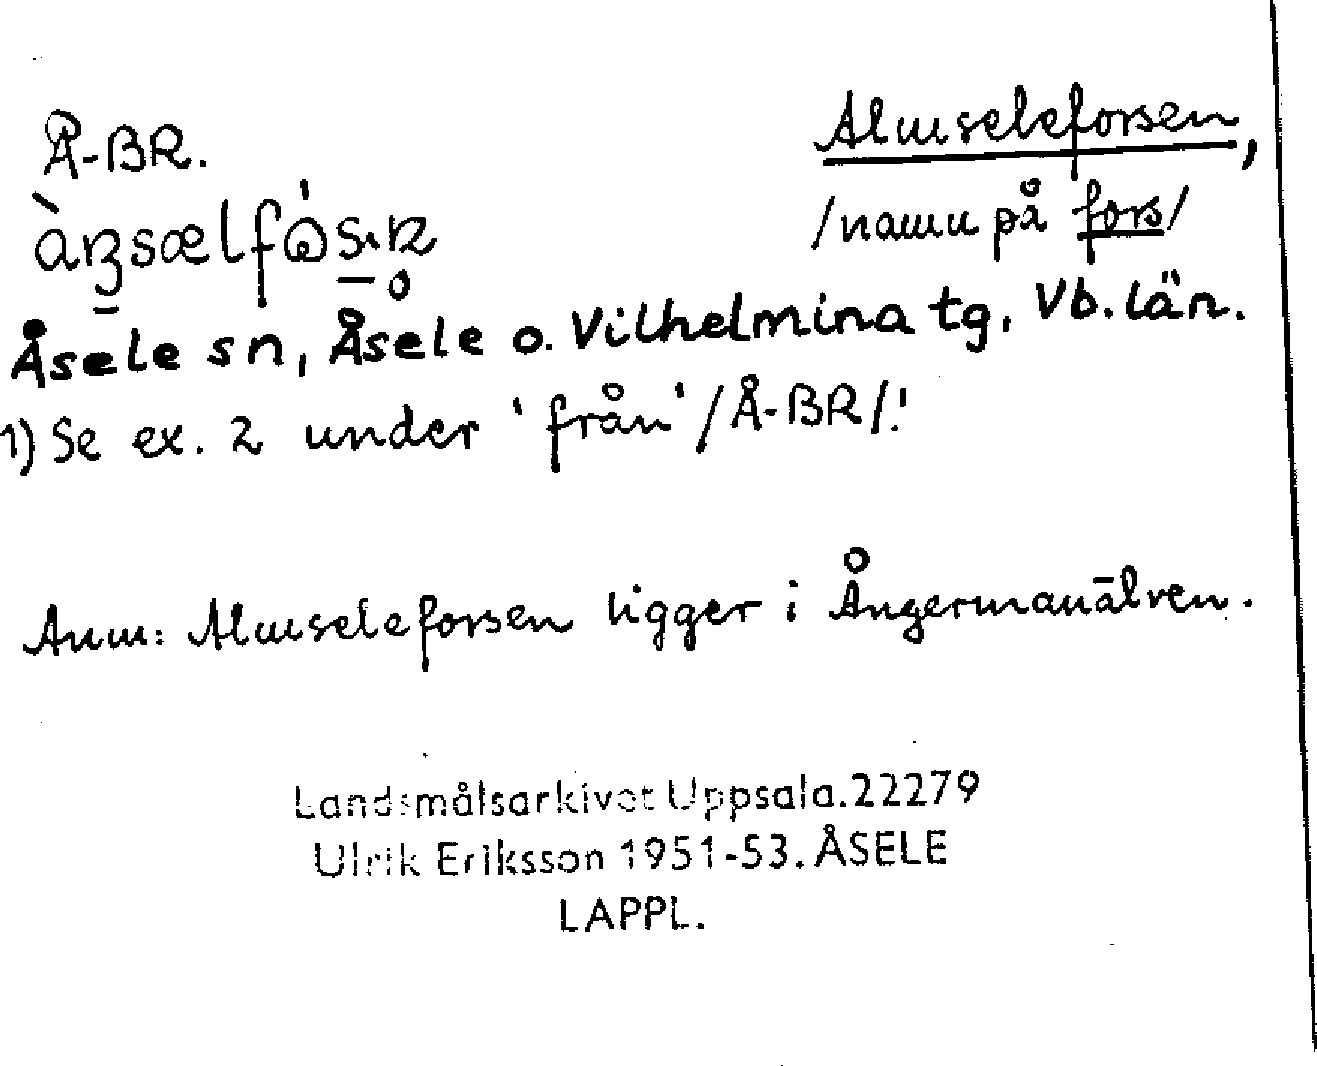 Å-BR.
Almseleforsen,
/namn på fors/
Åsele sn, Åsele o. Vilhelmina tg, Vb. län.
1) Se ex. 2 under 'från' /Å-BR/!
Anm: Almseleforsen ligger i Ångermanälven.
Landsmålsarkivet Uppsala. 22279
Ulrik Eriksson 1951-53. ÅSELE
LAPPL.